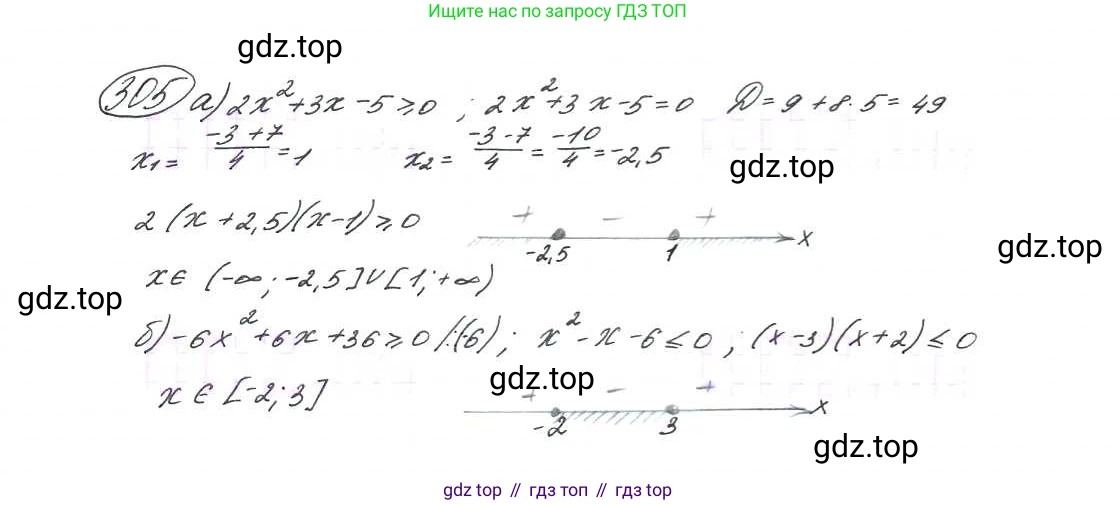 Ищите нас по запросу ГДЗ ТОП
gdz.top
305 а) 2x² + 3x - 5 ≥ 0 ; 2x² + 3x - 5 = 0 D = 9 + 8·5 = 49
x₁ = (-3 + 7)/4 = 1 x₂ = (-3 - 7)/4 = -10/4 = -2,5
gdz.top
2 (x + 2,5)(x - 1) ≥ 0
+ - +
-2,5 1 x
gdz.top
x ∈ (-∞; -2,5] ∪ [1; +∞)
gdz.top
б) -6x² + 6x + 36 ≥ 0 /:(-6) ; x² - x - 6 ≤ 0 ; (x - 3)(x + 2) ≤ 0
gdz.top
x ∈ [-2; 3]
+ - +
-2 3 x
gdz.top
gdz top // гдз топ // гдз top